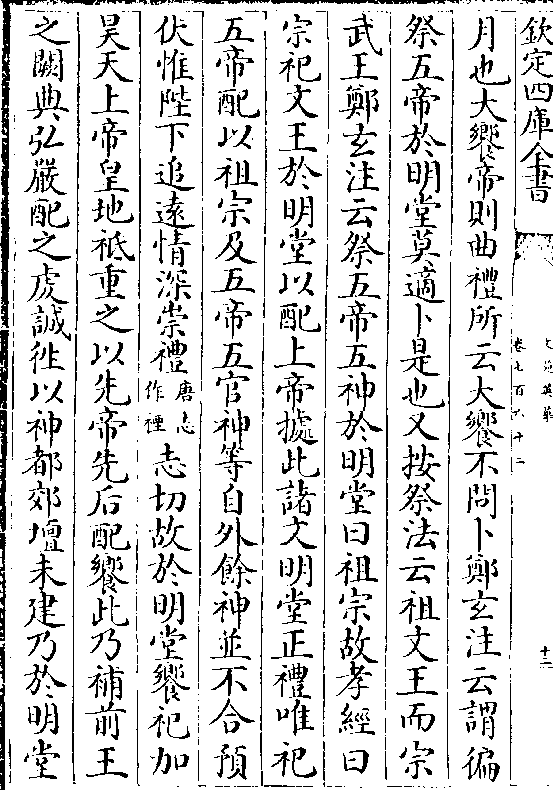 欽定四庫全書
文苑英華
卷七百六十二
十二
月也大饗帝則曲禮所云大饗不問卜鄭玄注云謂徧
祭五帝於明堂莫適卜是也又按祭法云祖文王而宗
武王鄭玄注云祭五帝五神於明堂曰祖宗故孝經曰
宗祀文王於明堂以配上帝據此諸文明堂正禮唯祀
五帝配以祖宗及五帝五官神等自外餘神並不合預
伏惟陛下追遠情深崇禮唐志作禋志切故於明堂饗祀加
昊天上帝皇地祇重之以先帝先后配饗此乃補前王
之闕典弘嚴配之虔誠徃以神都郊壇未建乃於明堂